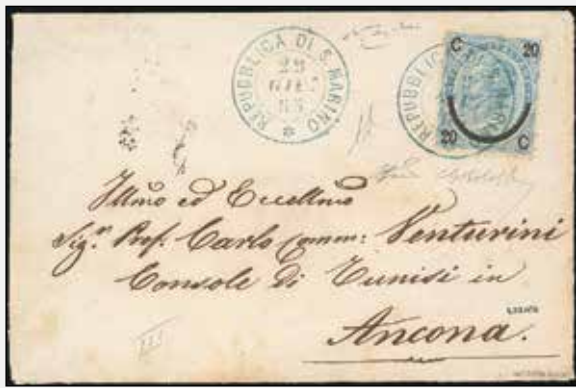 REPUBBLICA DI S. MARINO
C 20
REPUBBLICA
20 C
Illmo ed Eccellmo
Sigr. Prof. Carlo Comm: Venturini
Console di Tunisi in
Ancona.